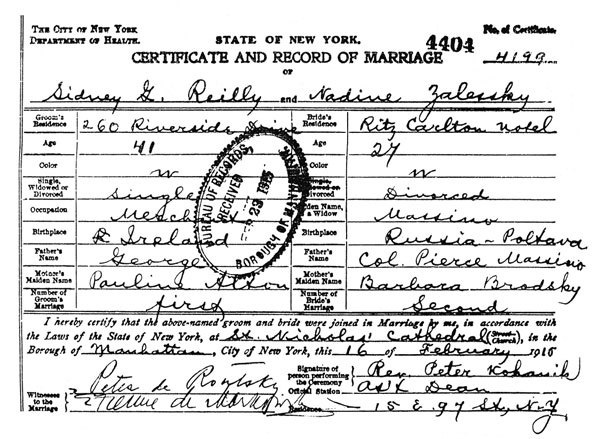 THE CITY OF NEW YORK
DEPARTMENT OF HEALTH.
STATE OF NEW YORK.
4404
No. of Certificate.
4199
CERTIFICATE AND RECORD OF MARRIAGE
OF
Sidney G. Reilly and Nadine Zalessky
Groom's Residence 260 Riverside Drive Bride's Residence Ritz Carlton Hotel
Age 41 Age 27
Color W Color W
Single, Widowed or Divorced Single Single, Widowed or Divorced Divorced
Occupation Merch Maiden Name, if a Widow Massino
Birthplace Ireland Birthplace Russia - Poltava
Father's Name George Father's Name Col. Pierce Massino
Mother's Maiden Name Pauline Mother's Maiden Name Barbara Brodsky
Number of Groom's Marriage first Number of Bride's Marriage Second
BUREAU OF RECORDS
RECEIVED
FEB 23 1915
BOROUGH OF MANHATTAN
I hereby certify that the above-named groom and bride were joined in Marriage by me, in accordance with
the Laws of the State of New York, at St. Nicholas' Cathedral (Street Church), in the
Borough of Manhattan, City of New York, this 16 of February 191
Witnesses to the Marriage
Peter de
Signature of person performing the Ceremony Rev. Peter Kohanik
Official Station Ass't Dean
Residence 15 E. 97 St., N.Y.